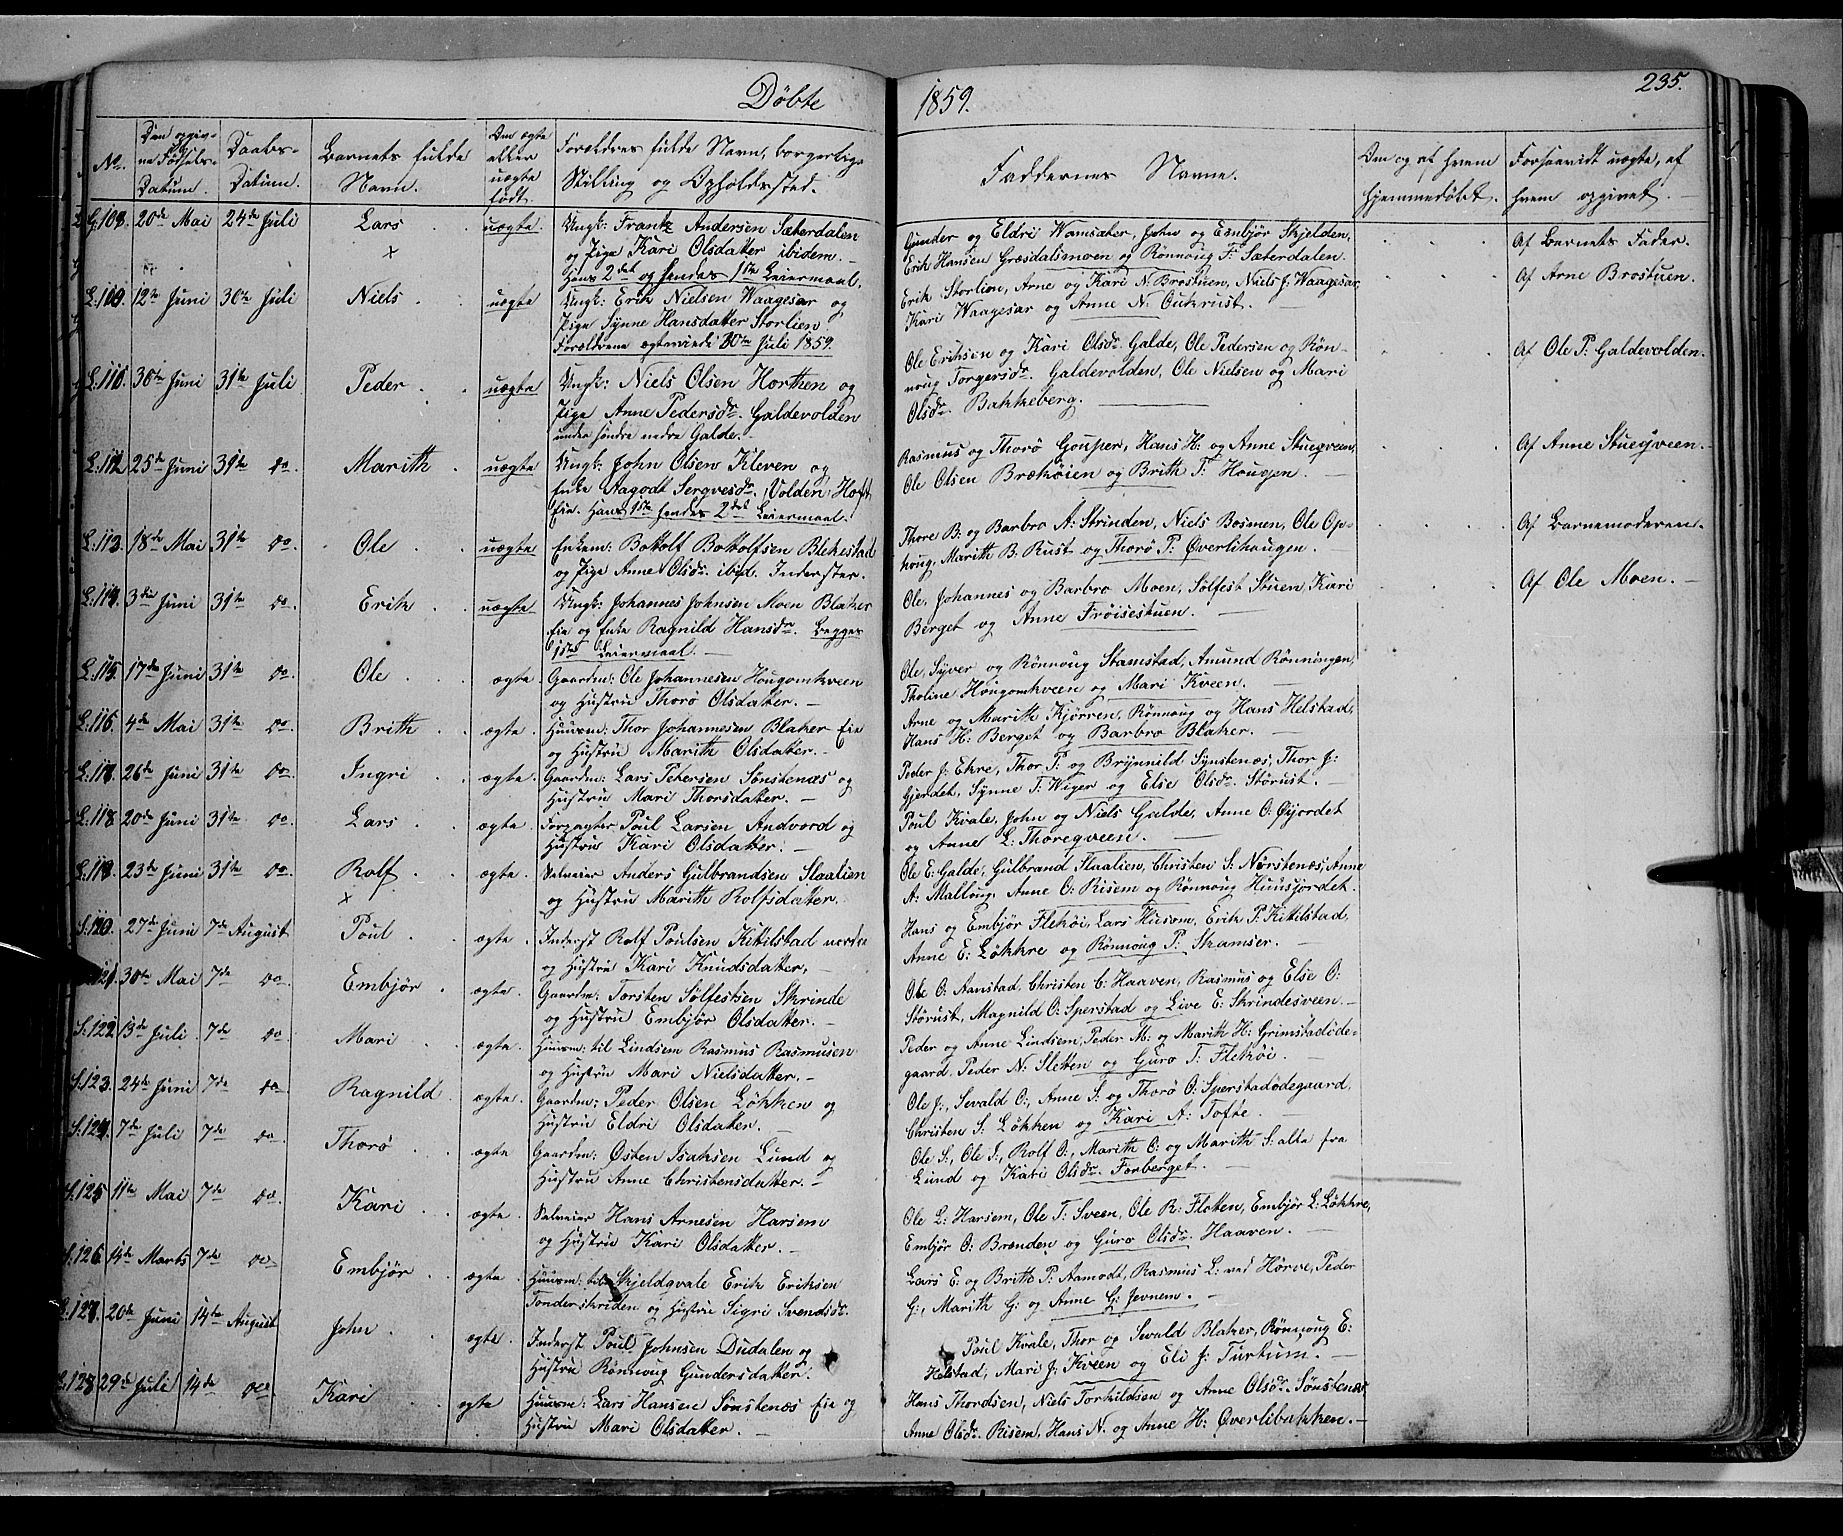 Döbte 1859. 235.
No. Den opgiv- Daabs- Barnets fulde Om ægte Forældres fulde Navn, borgerlige Faddernes Navne. Om og af hvem Forsaavidt uægte, af
ne Fødsels- Datum. Navn. eller Stilling og Opholdssted. hjemmedöbt. hvem opgivet.
Datum. uægte
født.
L. 108. 20de Mai 24de Juli Lars uægte Ungk: Frantz Andersen Sæterdalen Gunder og Eldri Wamsæter, John og Embjör Skjelden, Af Barnets Fader.
og Pige Kari Olsdatter ibidem. Erik Hansen Græsdalsmoen og Rönnoug F. Sæterdalen.
Hans 2det og hendes 1ste Leiermaal.
L. 109. 12te Juni 30te Juli Niels uægte Ungk: Erik Nielsen Waagesar og Erik Storlien, Arne og Kari N. Brostuen, Niels J. Waagesar, Af Arne Brostuen.
Pige Synne Hansdatter Storlien. Kari Waagesar og Anne N. Cukrust.
Forældrene ægteviede 30te Juli 1859.
L. 110. 30te Juni 31te Juli Peder uægte Ungk: Niels Olsen Horthen og Ole Eriksen og Kari Olsdr. Galde, Ole Pedersen og Rön- Af Ole P. Galdevolden.
Pige Anne Pedersdr. Galdevolden noug Torgersdr. Galdevolden, Ole Nielsen og Mari
under söndre nedre Galde. Olsdr. Bakkeberg.
L. 112. 25de Juni 31te do Marith uægte Ungk: John Olsen Kleven og Rasmus og Thorö Gouper, Hans H: og Anne Stuegveen, Af Anne Stuegveen.
Enke Aagodt Sergvesdr. Volden Hoft Ole Olsen Bræköien og Brith T: Hougen.
Eie. Hans 1ste hendes 2det Leiermaal.
L. 113. 18de Mai 31te do Ole uægte Enkem: Bottolf Bottolfsen Blekestad Thore B. og Barbro A: Strinden, Niels Bosmen, Ole Op- Af Barnemoderen.
og Pige Anne Olsdr. ibid. Inderster. houg, Marith B. Rust og Thorö P: Överlihougen.
L. 114. 3die Juni 31te do Erik uægte Ungk: Johannes Johnsen Moen Blaker Ole, Johannes og Barbro Moen, Sölfest Stuen, Kari Af Ole Moen.
Eie og Enke Ragnild Hansdr. Begges Berget og Anne Fröisestuen.
1ste Leiermaal.
L. 115. 17de Juni 31te do Ole ægte Gaardm: Ole Johannesen Hougomkveen Ole, Syver og Rönnoug Stamstad, Amund Rönningen,
og Hustru Thorö Olsdatter. Tholine Hougomkveen og Mari Kveen.
L. 116. 4de Mai 31te do Brith ægte. Huusm: Thor Johannesen Blaker Eie Arne og Marith Kjörren, Rönnoug og Hans Helstad,
og Hustru Marith Olsdatter. Hans H: Berget og Barbro Blaker.
L. 117. 26de Juni 31te do Ingri ægte. Gaardm: Lars Petersen Sönstenæs og Peder J: Ekre, Thor P: og Brynnild Synstenæs, Thor J:
Hustru Mari Thorsdatter. Gjerdet, Synne T: Wiger og Else Olsdr. Störust.
L. 118 20de Juni 31te do Lars ægte. Forpagter Poul Larsen Andvord og Poul Kvale, John og Niels Galde, Anne O: Öyjordet
Hustru Kari Olsdatter. og Anne L: Thoregveen.
L. 119. 23de Juni 31te do Rolf ægte. Selveier Anders Gulbrandsen Slaalien Ole E: Galde, Gulbrand Slaalien, Christen S: Norstenæs, Anne
og Hustru Marith Rolfsdatter. A: Mallöug, Anne O: Risem og Rönnoug Huusjordet.
L. 120. 27de Juni 7de August Poul ægte. Inderst Rolf Poulsen Kittilstad nordre Hans og Embjör Flekøi, Lars Husom, Erik P: Kittilstad,
og Hustru Kari Knudsdatter, Anne E: Lökkre og Rönnoug P: Skamser.
121. 30te Mai 7de do Embjör ægte. Gaardm: Torsten Sölfestsen Skrinde Ole O: Aanstad, Christen C: Haaven, Rasmus og Else O:
og Hustru Embjör Olsdatter. Störust, Magnild O: Sperstad og Live E: Skrindesveen.
L. 122 13de Juli 7de do Mari ægte. Huusm: til Lindsem Rasmus Rasmusen Peder og Anne Lindsem, Peder M: og Marith H: Grimstadöde-
og Hustru Mari Nielsdatter. gaard, Peder N: Sletten og Guro T: Flekøi.
L. 123. 24de Juni 7de do Ragnild ægte. Gaardm: Peder Olsen Lökken og Ole J:, Sevald O:, Anne S: og Thorö O: Sperstadödegaard,
Hustru Eldri Olsdatter. Christen S: Lökken og Kari A: Tofte.
L. 124. 7de Juli 7de do Thorö ægte Gaardm: Östen Isaksen Lund og Ole S:, Ole I:, Rolf O:, Marith O: og Marith S: alle fra
Hustru Anne Christensdatter. Lund og Kari Olsdr. Forberget.
L. 125 11te Mai 7de do Kari ægte. Selveier Hans Arnesen Harsem Ole L: Harsem, Ole T: Sveen, Ole R: Flotten, Embjör L: Lökkre,
og Hustru Kari Olsdatter. Embjör O: Brenden og Guro Olsdr. Haaven.
L. 126 14de Marts 7de do Embjör ægte. Huusm: til Skjeldqvale Erik Eriksen Lars E: og Britte P: Aamodt, Rasmus L: ved Hörve, Peder
Tonderskriden og Hustru Sigri Svendsdr. G:, Marith G: og Anne G: Jevnem.
L. 127. 20de Juni 14te August John ægte Inderst Poul Johnsen Dudalen og Poul Kvale, Thor og Sevald Blaker, Rönnoug E:
Hustru Rönnoug Gundersdatter. Helstad, Mari J: Kveen og Eli J: Turtum.
L. 128 29de Juli 14de do Kari ægte Huusm: Lars Hansen Sönstenæs Eie og Hans Thordsen, Niels Torkildsen og Anne Olsdr. Sönstenæs
Hustru Mari Olsdatter. Anne Olsdr. Risem, Hans N. og Anne H: Överlibakken.